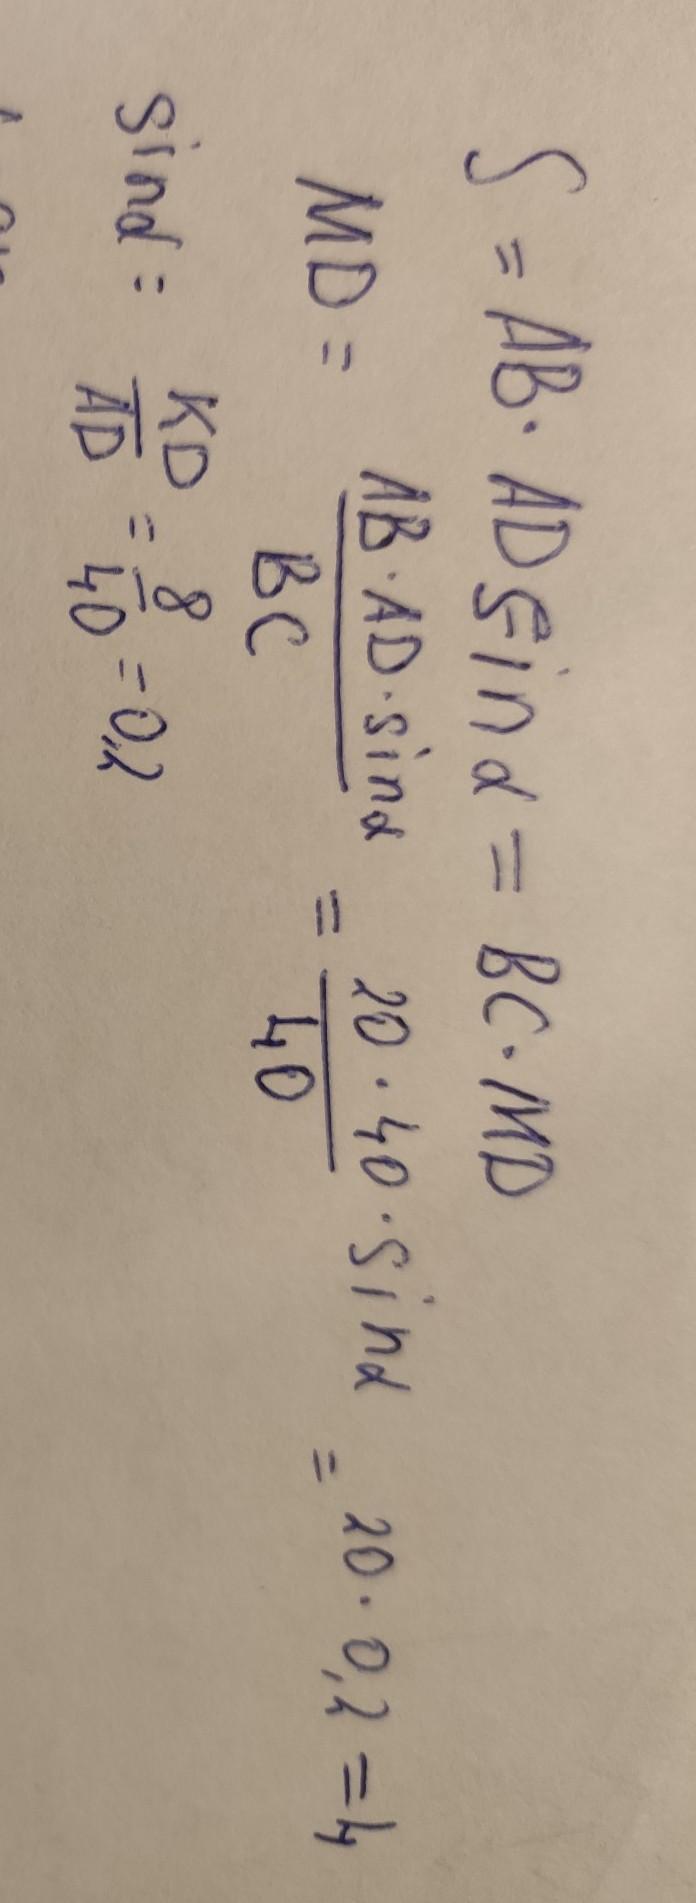 S = AB · AD sin α = BC · MD
MD = AB · AD · sin α / BC = 20 · 40 · sin α / 40 = 20 · 0,2 = 4
sin α = KD / AD = 8 / 40 = 0,2